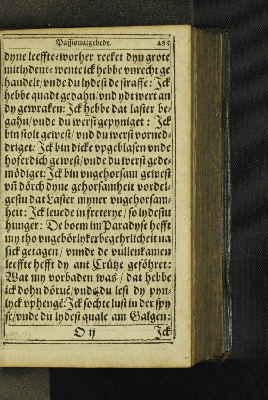 Passionalgebede. 295
dyne leeffte: worher recket dyn grote
mitlydent: wente ick hebbe vnrecht ge
handelt / vnde du lydest de straffe: Ick
hebbe quadt gedahn / vnd ydt wert an
dy gewraken: Ick hebbe dat laster be-
gahn / vnde du werst gepyniget: Ick
bin stolt gewest / vnd du werst vorned-
driget: Ick bin dicke vpgeblasen vnde
hoferdich gewest / vnde du werst gede-
mödiget: Ick bin vngehorsam gewest
vñ dörch dyne gehorsamheit vordel-
gestu dat Laster myner vngehorsam-
heit: Ick leuede in freterye / so lydestu
hunger: De boem im Paradyse hefft
my tho vngebörlyker begehrlicheit na
sick getagen / vnnde de vullenkamen
leeffte hefft dy ant Crütze geföhret:
Wat my vorbaden was / dat hebbe
ick dohn dörue / vnde du lest dy pyn-
lyck vphenge: Ick sochte lust in der spy
se / vnde du lydest quale am Galgen:
O ij Ick